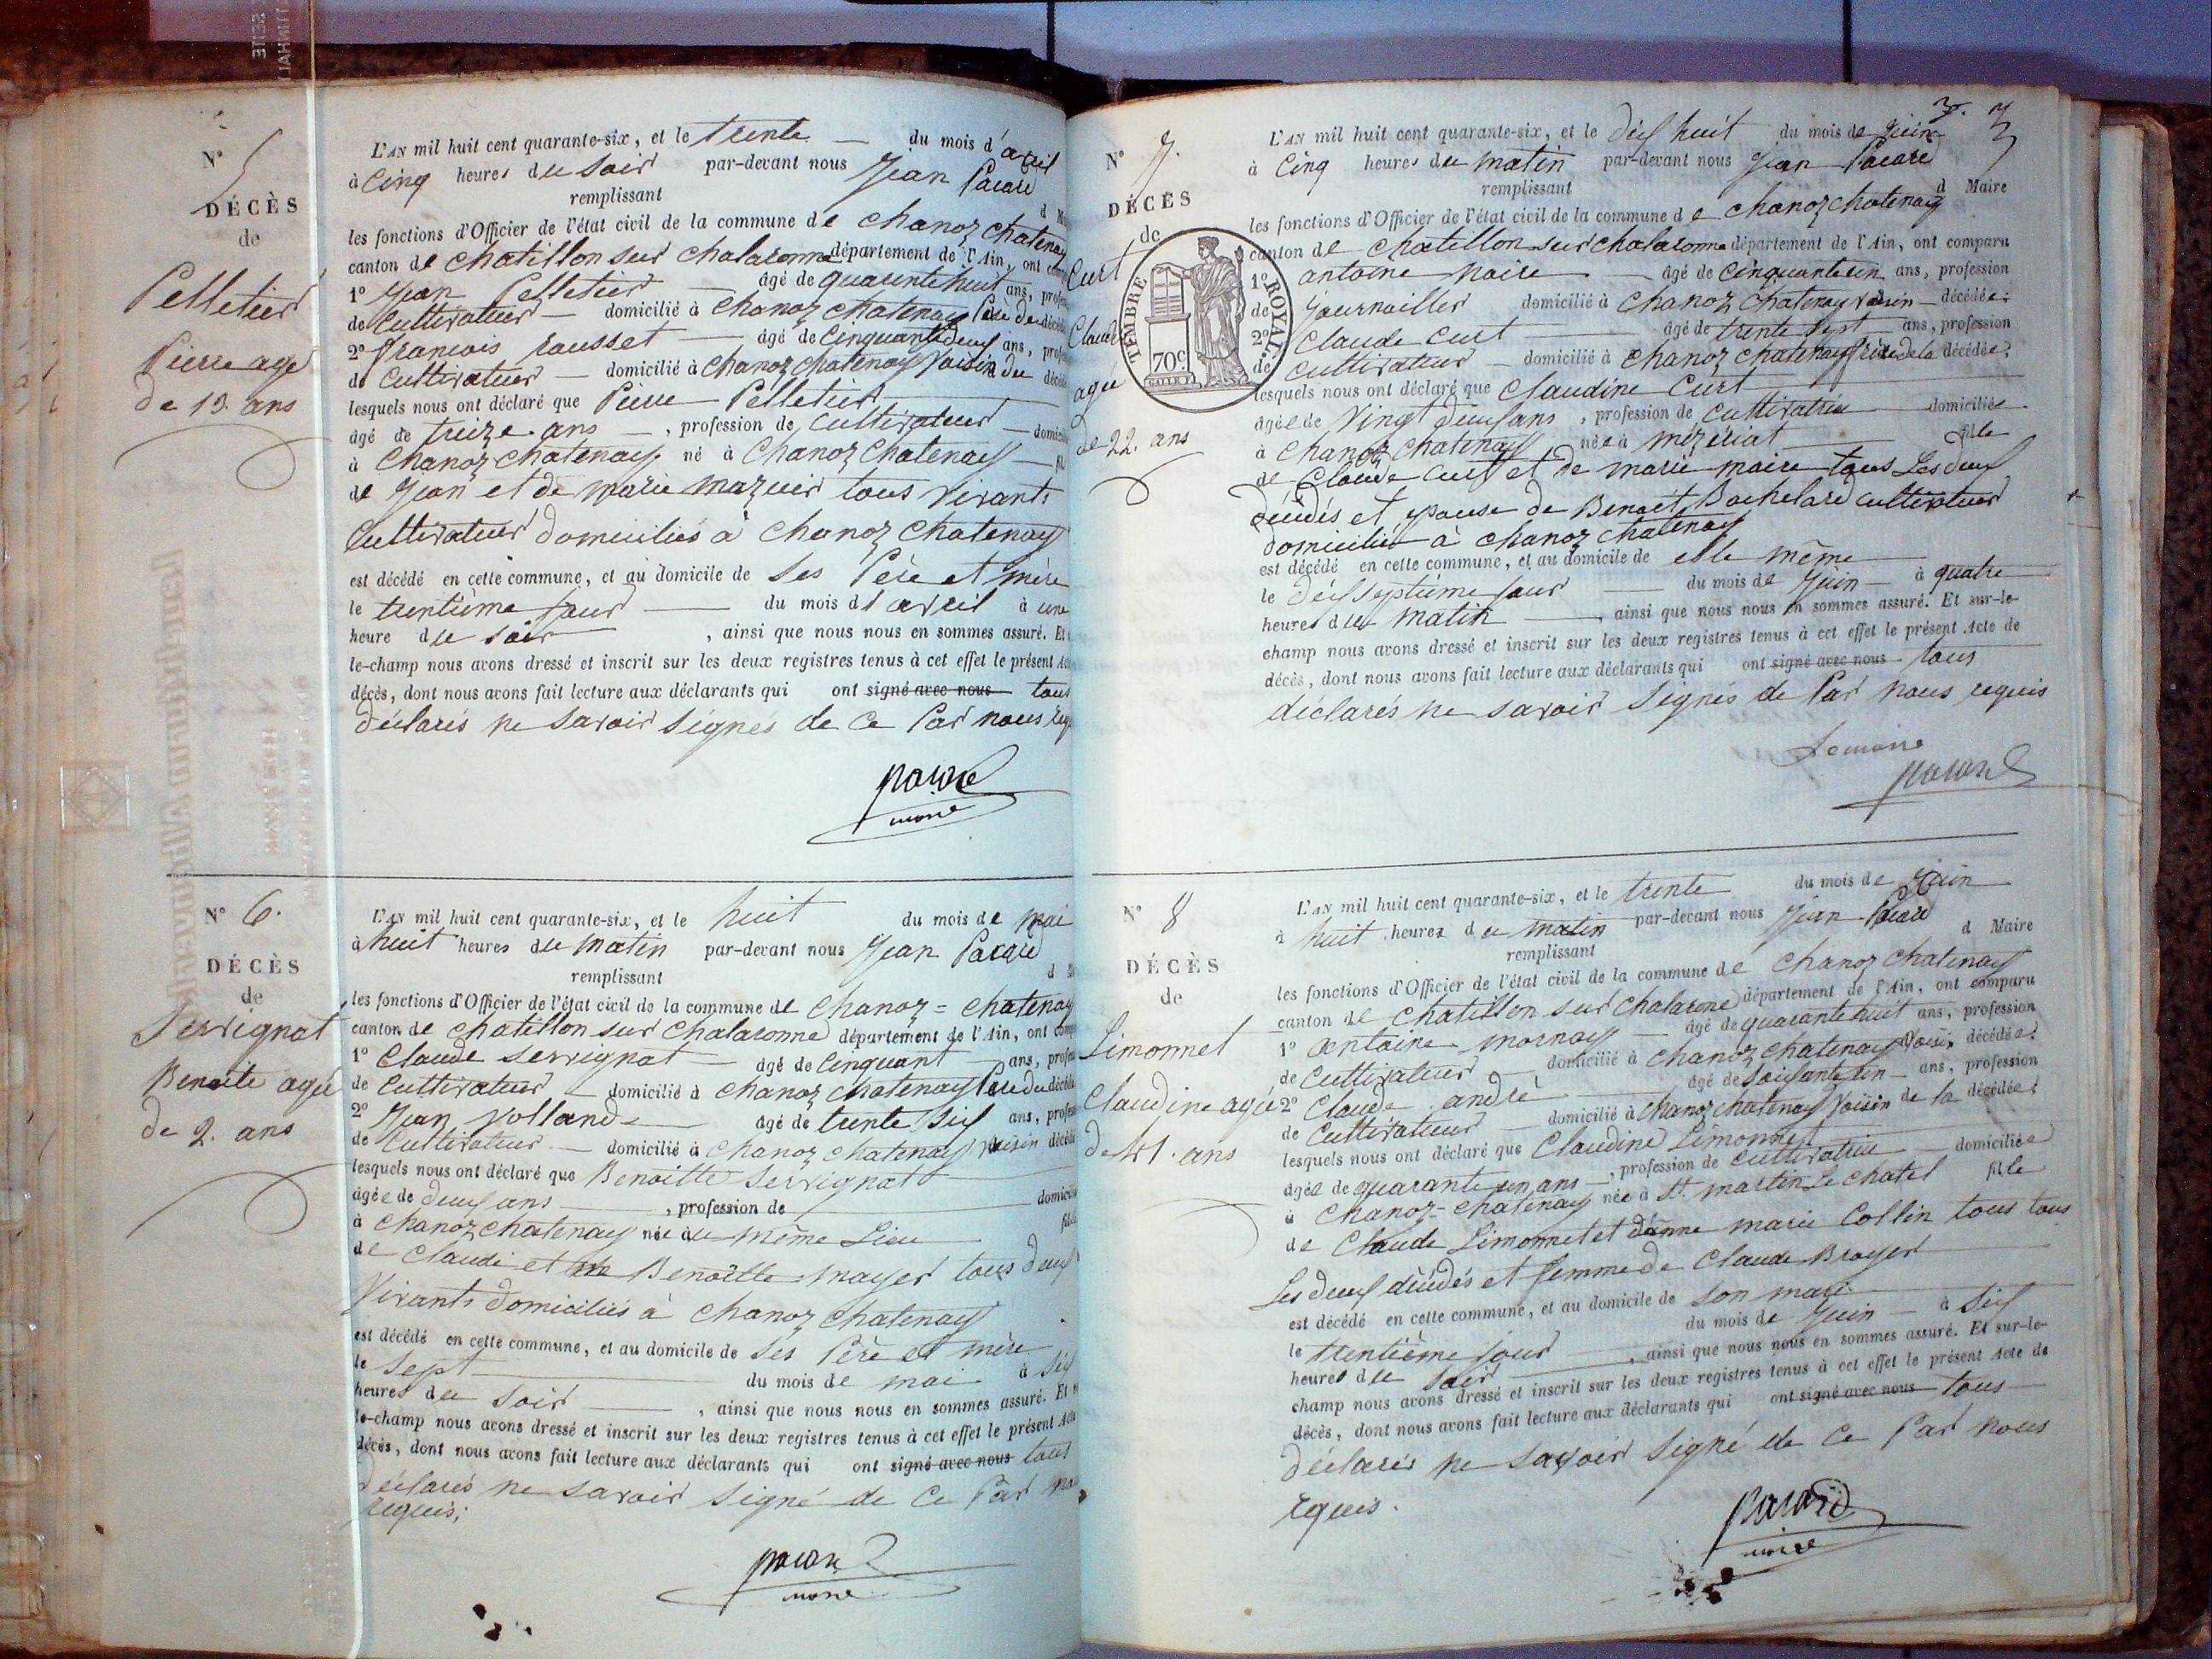 N° 5
DÉCÈS
de
Pelletier
Pierre agé
de 13. ans
L'AN mil huit cent quarante-six, et le trente du mois d'avril
à Cinq heures du Soir par-devant nous Jean Pacard
remplissant
les fonctions d'Officier de l'état civil de la commune de Chanoz Chatenay
canton de Chatillon sur Chalaronne département de l'Ain, ont
1° Jean Pelletier âgé de quarente huit ans,
de Cultivateur domicilié à Chanoz Chatenay Père du
2° francois rousset âgé de Cinquantedeux ans,
de Cultivateur domicilié à Chanoz Chatenay Voisin du
lesquels nous ont déclaré que Pierre Pelletier
âgé de treize ans, profession de Cultivateur
à Chanoz Chatenay né à Chanoz Chatenay
de Jean et de marie mazuer tous Vivants
Cultivateur domiciliés à Chanoz Chatenay
est décédé en cette commune, et au domicile de Ses Père et mère
le trentième Jour du mois d'avril à une
heure du Soir, ainsi que nous nous en sommes assuré. Et
le-champ nous avons dressé et inscrit sur les deux registres tenus à cet effet le présent
décès, dont nous avons fait lecture aux déclarants qui ont signé avec nous tous
déclarés ne Savoir Signés de Ce Par nous
pacard
maire
N° 6.
DÉCÈS
de
Servignat
Benoite agée
de 2. ans
L'AN mil huit cent quarante-six, et le huit du mois de mai
à huit heures du matin par-devant nous Jean Pacard
remplissant
les fonctions d'Officier de l'état civil de la commune de Chanoz = Chatenay
canton de Chatillon sur Chalaronne département de l'Ain, ont
1° Claude Servignat âgé de Cinquant ans,
de Cultivateur domicilié à Chanoz Chatenay Pere du
2° Jean Volland âgé de trente Six ans,
de Cultivateur domicilié à Chanoz Chatenay Voisin
lesquels nous ont déclaré que Benoitte Servignat
âgée de deux ans, profession de
à Chanoz Chatenay née au même Lieu
de Claude et Benoitte mayer tous deux
Vivants domiciliés à Chanoz Chatenay
est décédé en cette commune, et au domicile de Ses Père et mère
le Sept du mois de mai à Six
heures du Soir, ainsi que nous nous en sommes assuré. Et
le-champ nous avons dressé et inscrit sur les deux registres tenus à cet effet le présent Acte
décès, dont nous avons fait lecture aux déclarants qui ont signé avec nous tous
déclarés ne Savoir Signé de Ce Par
requis;
pacard
maire
3. 3
N° 7.
DÉCÈS
de
Curt
Claud
agée
de 22. ans
TIMBRE ROYAL.
70c.
L'AN mil huit cent quarante-six, et le dix huit du mois de Juin
à Cinq heures du matin par-devant nous Jean Pacard
remplissant d Maire
les fonctions d'Officier de l'état civil de la commune de Chanoz Chatenay
canton de Chatillon sur Chalaronne département de l'Ain, ont comparu
1° antoine noire âgé de Cinquanteun ans, profession
de Journaillier domicilié à Chanoz Chatenay Voisin décédée;
2° Claude Curt âgé de trente Sept ans, profession
de Cultivateur domicilié à Chanoz Chatenay frère de la décédée;
lesquels nous ont déclaré que Claudine Curt
âgée de Vingt deux ans, profession de Cultivatrice domiciliée
à Chanoz Chatenay née à mézériat fille
de Claude Curt et de marie maire tous Les deux
décédés et epouse de Benoit Bachelard Cultivateur
domicilié à Chanoz Chatenay
est décédé en cette commune, et au domicile de elle même
le dix Septième Jour du mois de Juin à quatre
heures du matin, ainsi que nous nous en sommes assuré. Et sur-le-
champ nous avons dressé et inscrit sur les deux registres tenus à cet effet le présent Acte de
décès, dont nous avons fait lecture aux déclarants qui ont signé avec nous tous
déclarés ne Savoir Signés de Par nous requis
Le maire
pacard
N° 8
DÉCÈS
de
Limonnet
Claudine agée
de 41. ans
L'AN mil huit cent quarante-six, et le trente du mois de Juin
à huit heures du matin par-devant nous Jean Pacard
remplissant d Maire
les fonctions d'Officier de l'état civil de la commune de Chanoz Chatenay
canton de Chatillon sur Chalarone département de l'Ain, ont comparu
1° Antoine mornay âgé de quarante huit ans, profession
de Cultivateur domicilié à Chanoz Chatenay Voisin décédée;
2° Claude andré âgé de Soixante un ans, profession
de Cultivateur domicilié à Chanoz Chatenay Voisin de la décédée;
lesquels nous ont déclaré que Claudine Limonnet
âgée de quarante un ans, profession de Cultivatrice domiciliée
à Chanoz = Chatenay née à St. martin Le Chatel fille
de Claude Limonnet et d'anne marie Collin tous tous
Les deux décédés et femme de Claude Broyer
est décédé en cette commune, et au domicile de Son mari
le trentième Jour du mois de Juin à Six
heures du Soir, ainsi que nous nous en sommes assuré. Et sur-le-
champ nous avons dressé et inscrit sur les deux registres tenus à cet effet le présent Acte de
décès, dont nous avons fait lecture aux déclarants qui ont signé avec nous tous
déclarés ne Savoir Signé de Ce Par nous
requis.
pacard
maire